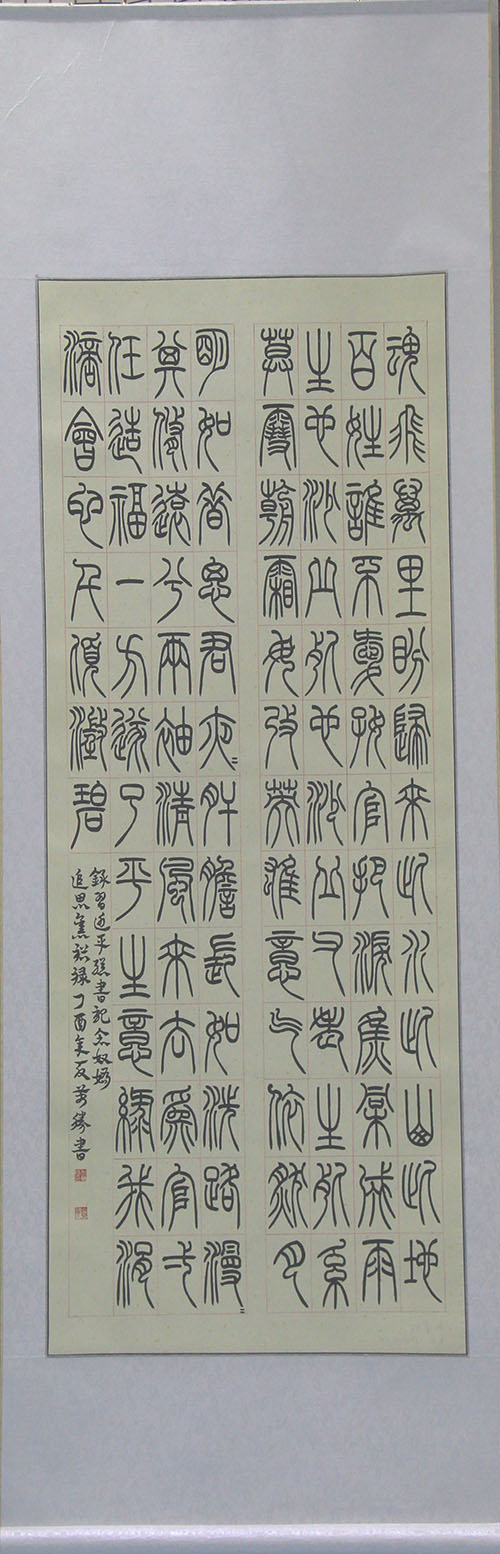 魂飛萬里盼歸來此水此山此地
百姓誰不愛好官把淚焦桐成雨
生也沙丘死也沙丘父老生死系
暮雪朝霜毋改英雄意气依然月
明如昔思君夜〻肝膽長如洗路漫〻
其修遠兮兩袖清風來去爲官弌
任造福一方遂了平生意綠我涓
滴會它千頃澄碧
錄習近平總書記念奴嬌
追思焦裕祿 丁酉年夏 書